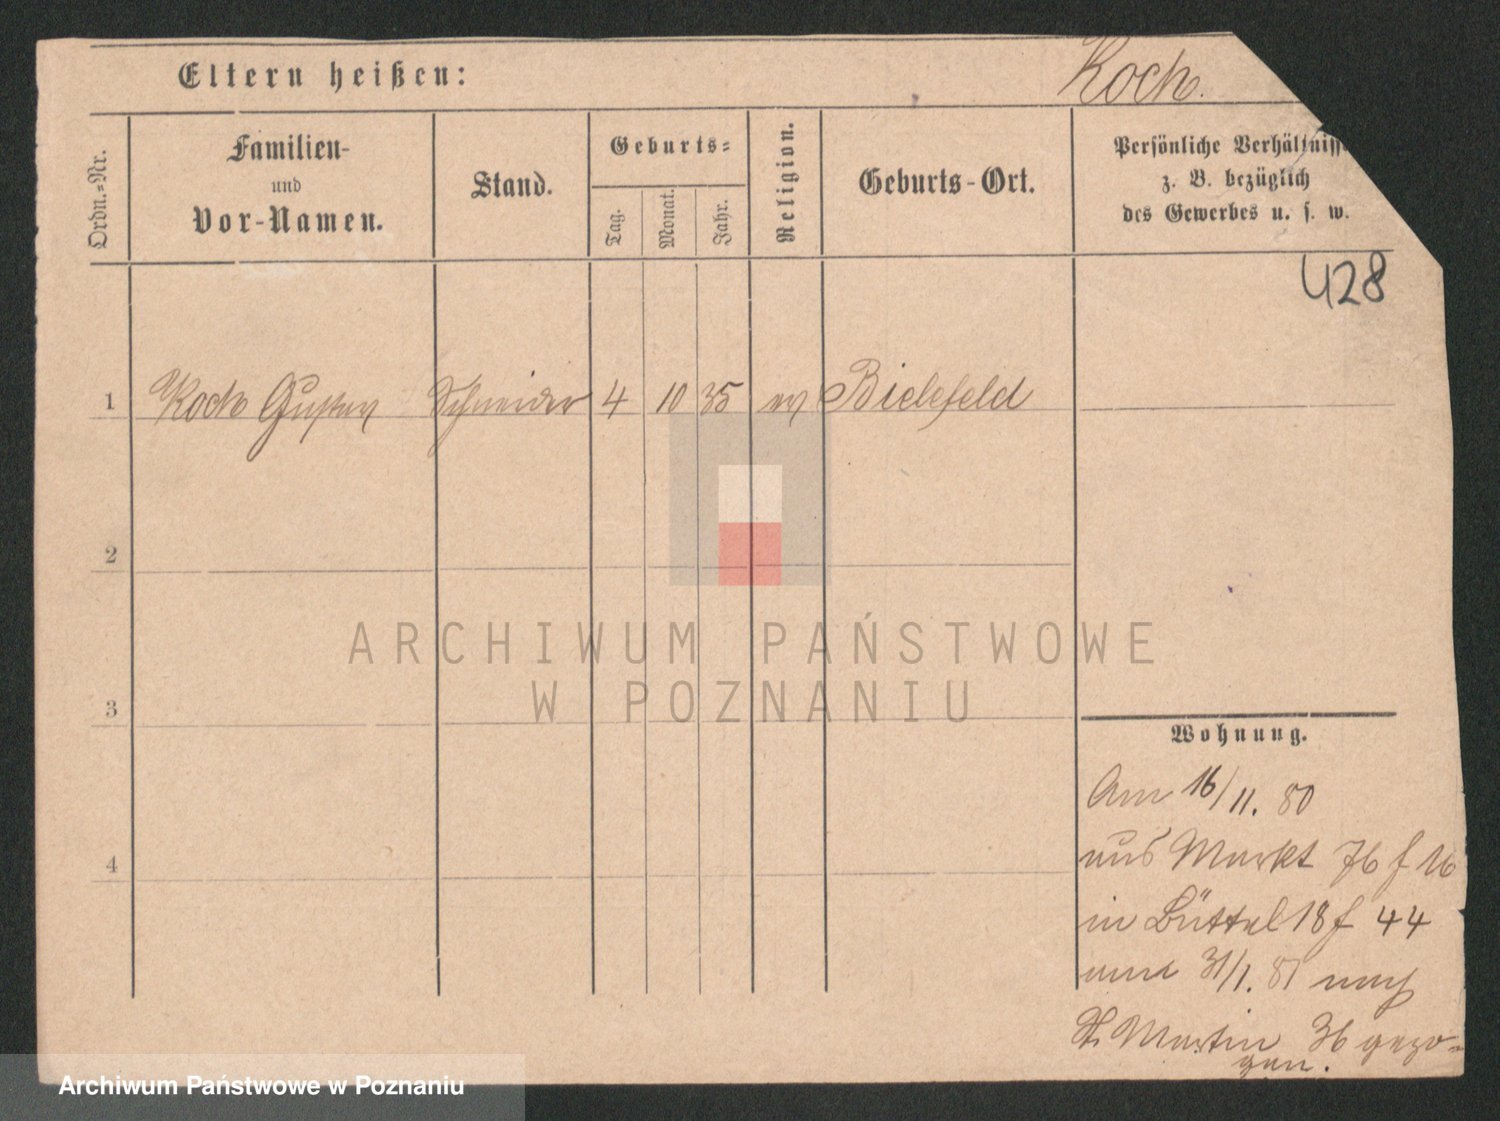 Eltern heißen:
Koch.
Ordn.-Nr.
Familien-
und
Vor-Namen.
Stand.
Geburts-
Tag.
Monat.
Jahr.
Religion.
Geburts-Ort.
Persönliche Verhältnisse
z. B. bezüglich
des Gewerbes u. s. w.
428
1 Koch Gustav Schneider 4 10 35 ev Bielefeld
2
3
4
ARCHIWUM PAŃSTWOWE
W POZNANIU
Wohnung.
Am 16/11. 80
aus Markt 76 f 16
in Büttel 18 f 44
am 31/1. 81 nach
St. Martin 36 gezo-
gen.
Archiwum Państwowe w Poznaniu